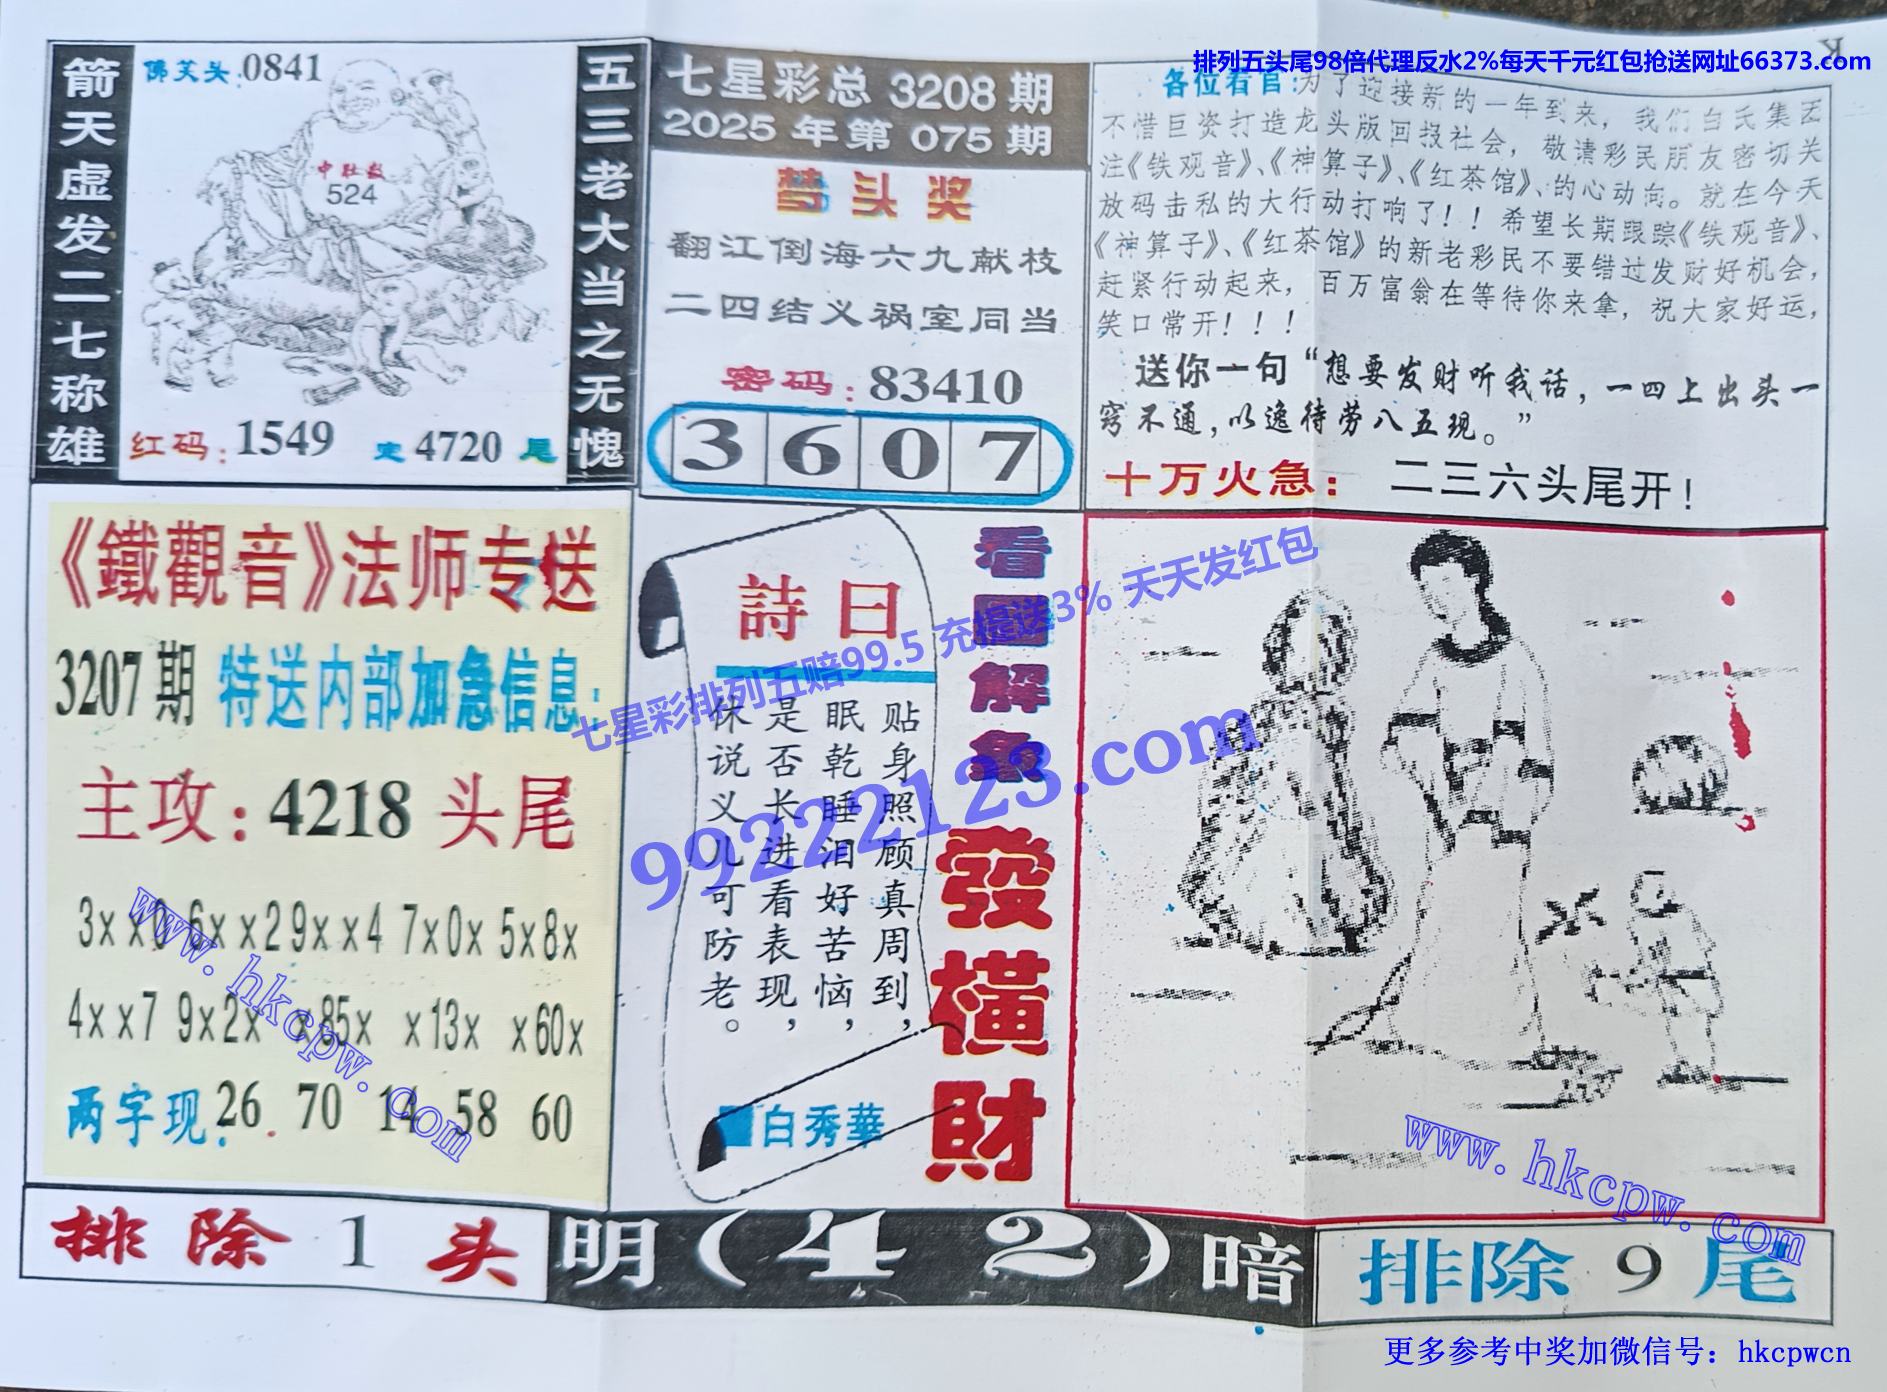 排列五头尾98倍代理反水2%每天千元红包抢送网址66373.com
箭天虚发二七称雄
佛笑头:0841
中肚数
524
红码:1549 定4720尾
五三老大当之无愧
七星彩总 3208 期
2025 年第 075 期
梦头奖
翻江倒海六九献枝
二四结义祸室同当
密码:83410
3 6 0 7
各位看官:为了迎接新的一年到来,我们白氏集团
不惜巨资打造龙头版回报社会,敬请彩民朋友密切关
注《铁观音》、《神算子》、《红茶馆》、的心动向。就在今天
放码击私的大行动打响了!!希望长期跟踪《铁观音》、
《神算子》、《红茶馆》的新老彩民不要错过发财好机会,
赶紧行动起来,百万富翁在等待你来拿,祝大家好运,
笑口常开!!!
送你一句“想要发财听我话,一四上出头一
窍不通,以逸待劳八五现。”
十万火急: 二三六头尾开!
《鐵觀音》法师专送
3207期 特送内部加急信息:
主攻:4218头尾
3xx6 6xx2 9xx4 7x0x 5x8x
4xx7 9x2x x85x x13x x60x
两字现: 26 70 14 58 60
詩曰
贴身照顾真周到,
眠乾睡泪好苦恼,
是否长进看表现,
休说义儿可防老。
白秀華
看图解象
發橫財
七星彩排列五赔99.5 充提送3% 天天发红包
99222123.com
www.hkcpw.com
www.hkcpw.com
排除 1 头
明(42)暗
排除 9 尾
更多参考中奖加微信号:hkcpwcn